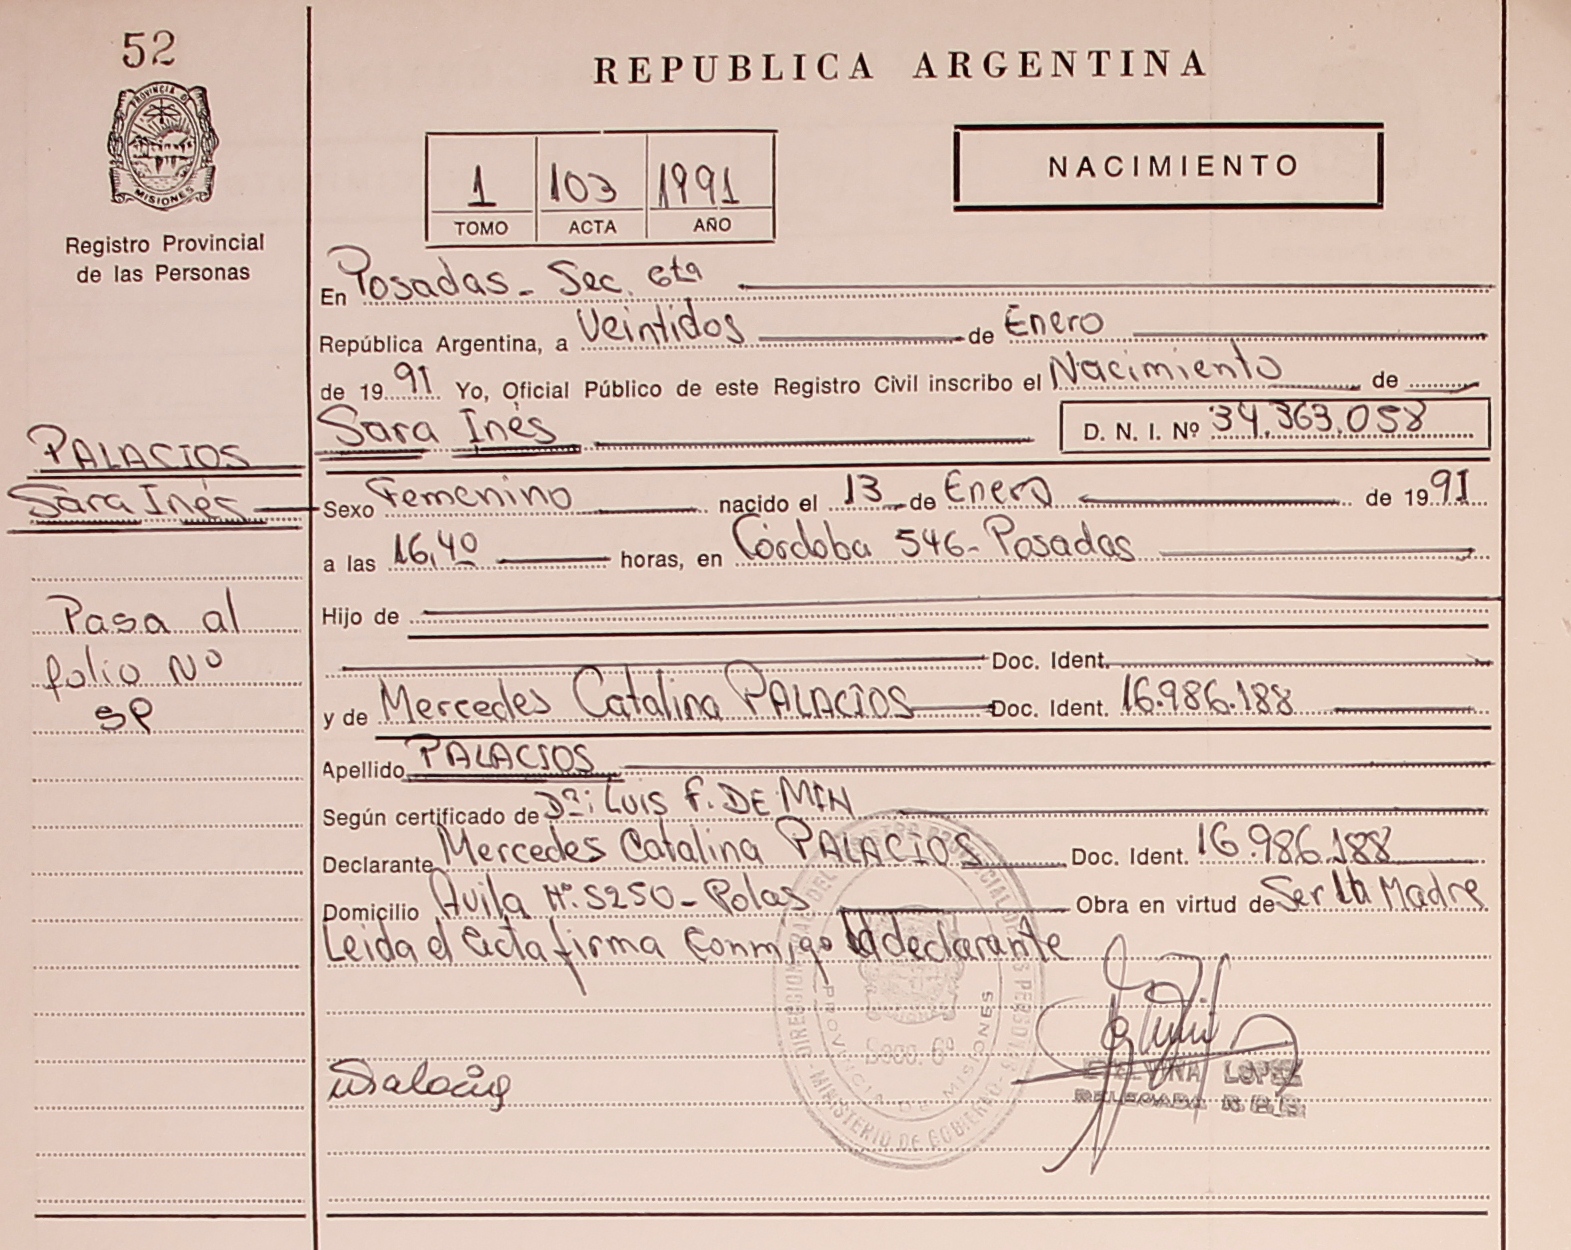 52
PROVINCIA DE
MISIONES
Registro Provincial
de las Personas
REPUBLICA ARGENTINA
1 103 1991
TOMO ACTA AÑO
NACIMIENTO
En Posadas - Sec. 6ta
República Argentina, a Veintidos de Enero
de 19 91 Yo, Oficial Público de este Registro Civil inscribo el Nacimiento de
Sara Inés D. N. I. Nº 34.363.058
PALACIOS
Sara Inés
Sexo Femenino nacido el 13 de Enero de 19 91
a las 16,40 horas, en Córdoba 546 - Posadas
Hijo de
Doc. Ident.
y de Mercedes Catalina PALACIOS Doc. Ident. 16.986.188
Pasa al
folio Nº
Apellido PALACIOS
Según certificado de Luis F. DE MIN
Declarante Mercedes Catalina PALACIOS Doc. Ident. 16.986.188
Domicilio Avila Nº. 5250 - Polas Obra en virtud de Ser la Madre
Leida el acta firma conmigo la declarante
PROVINCIA DE MISIONES
MINISTERIO DE GOBIERNO
Secc. 6ª
LOPEZ
DELEGADA